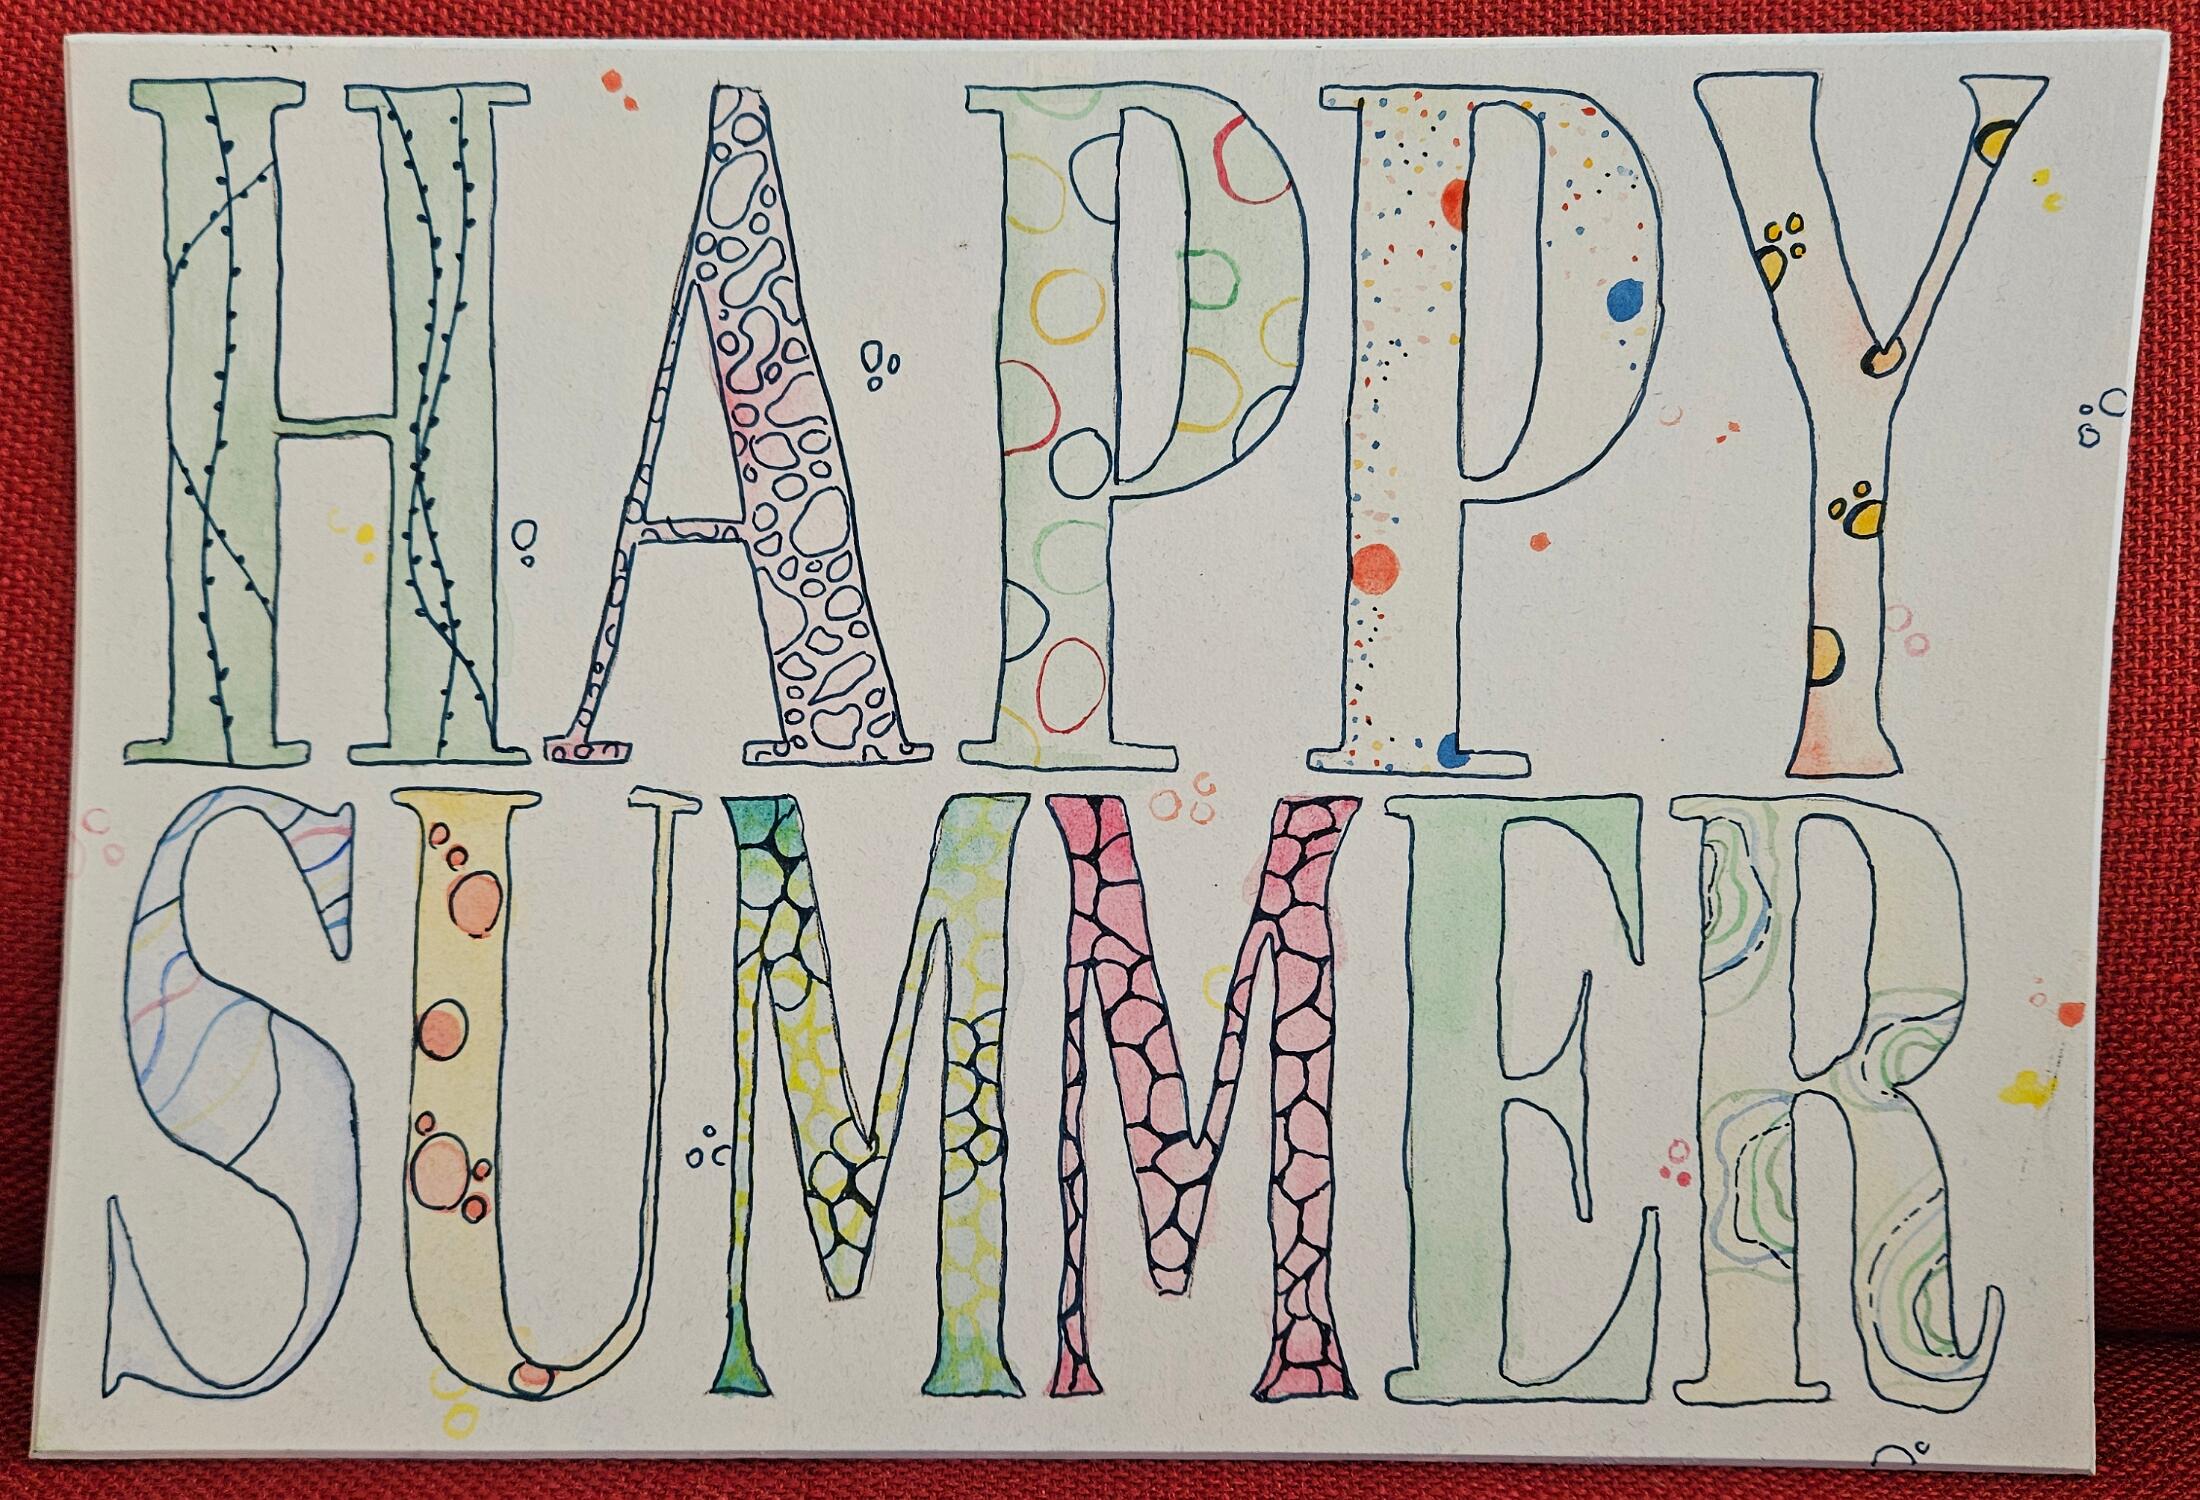 HAPPY
SUMMER